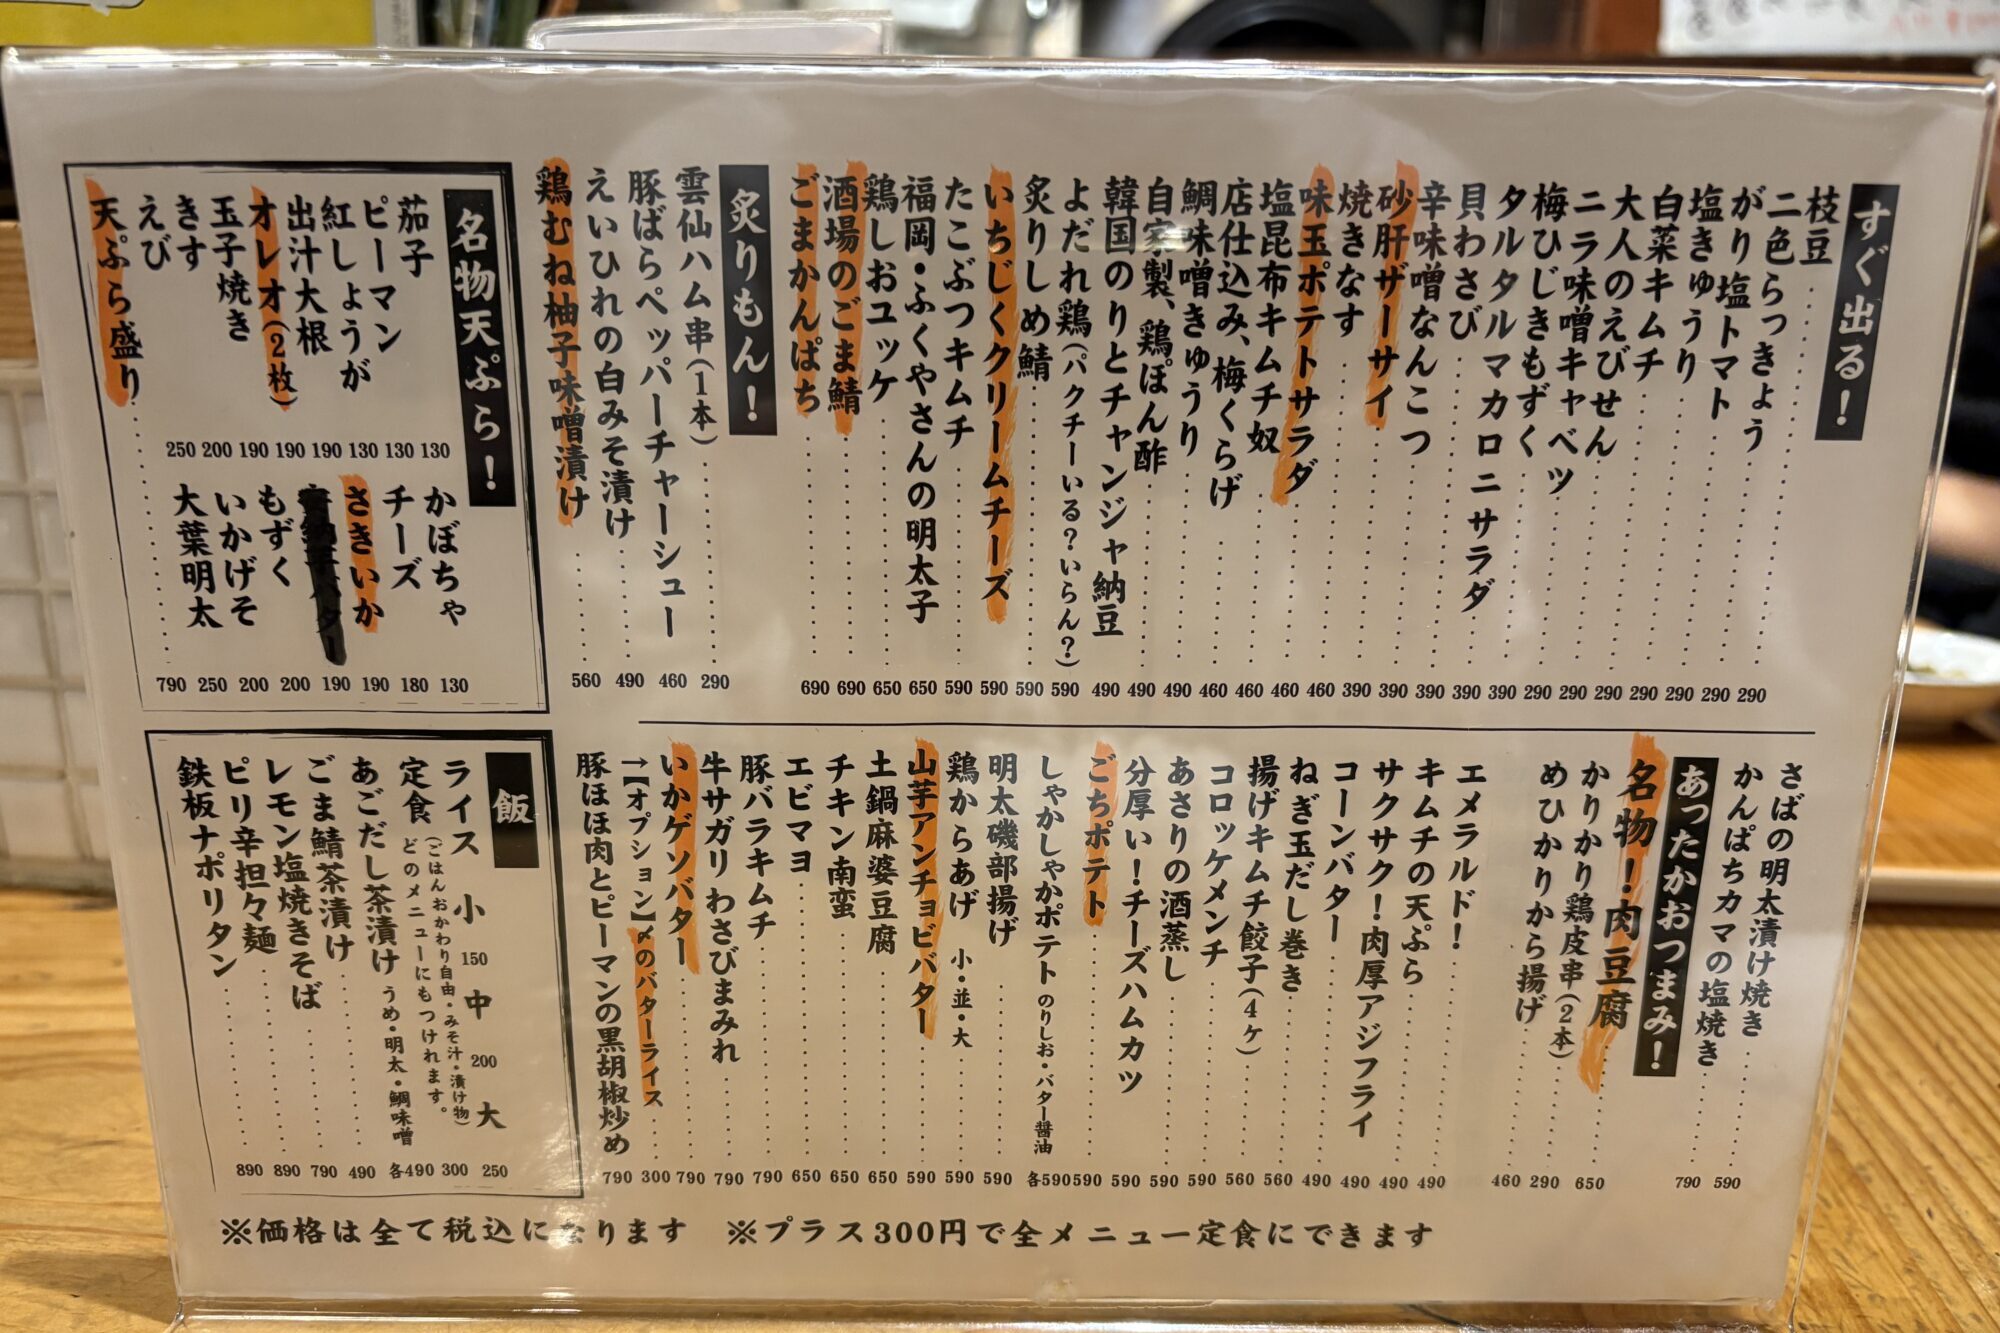 すぐ出る！
枝豆 290
二色らっきょう 290
がり塩トマト 290
塩きゅうり 290
白菜キムチ 290
大人のえびせん 290
ニラ味噌キャベツ 290
梅ひじきもずく 390
タルタルマカロニサラダ 390
貝わさび 390
辛味噌なんこつ 390
砂肝ザーサイ 390
焼きなす 460
味玉ポテトサラダ 460
塩昆布キムチ奴 460
店仕込み、梅くらげ 460
鯛味噌きゅうり 490
自家製、鶏ぽん酢 490
韓国のりとチャンジャ納豆 490
よだれ鶏（パクチーいる？いらん？） 590
炙りしめ鯖 590
いちじくクリームチーズ 590
たこぶつキムチ 590
福岡・ふくやさんの明太子 650
鶏しおユッケ 650
酒場のごま鯖 690
ごまかんぱち 690
炙りもん！
雲仙ハム串（1本） 290
豚ばらペッパーチャーシュー 460
えいひれの白みそ漬け 490
鶏むね柚子味噌漬け 560
名物天ぷら！
茄子 130
ピーマン 130
紅しょうが 130
出汁大根 190
オレオ（2枚） 190
玉子焼き 190
きす 200
えび 250
天ぷら盛り 790
かぼちゃ 130
チーズ 180
さきいか 190
190
もずく 200
いかげそ 200
大葉明太 250
さばの明太漬け焼き 590
かんぱちカマの塩焼き 790
あったかおつまみ！
名物！肉豆腐 650
かりかり鶏皮串（2本） 290
めひかりから揚げ 460
エメラルド！ 490
キムチの天ぷら 490
サクサク！肉厚アジフライ 490
コーンバター 490
ねぎ玉だし巻き 560
揚げキムチ餃子（4ケ） 560
コロッケメンチ 590
あさりの酒蒸し 590
分厚い！チーズハムカツ 590
ごちポテト 590
しゃかしゃかポテト のりしお・バター醤油 各590
明太磯部揚げ 590
鶏からあげ 小・並・大 590
山芋アンチョビバター 590
土鍋麻婆豆腐 650
チキン南蛮 650
エビマヨ 650
豚バラキムチ 790
牛サガリわさびまみれ 790
いかゲソバター 790
→【オプション】〆のバターライス 300
豚ほほ肉とピーマンの黒胡椒炒め 790
飯
ライス 小 150 中 200 大 250
定食（ごはんおかわり自由・みそ汁・漬け物） 300
どのメニューにもつけれます。
あごだし茶漬け うめ・明太・鯛味噌 各490
ごま鯖茶漬け 490
レモン塩焼きそば 790
ピリ辛担々麺 890
鉄板ナポリタン 890
※価格は全て税込になります ※プラス300円で全メニュー定食にできます